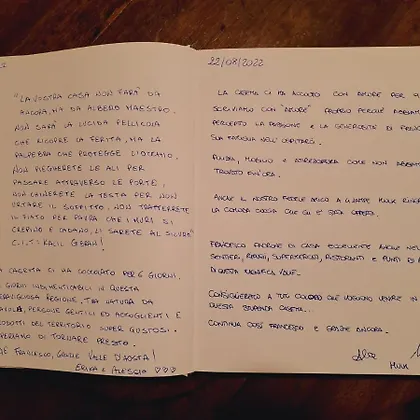 "LA VOSTRA CASA NON SARÀ DA
ANCORA, MA DA ALBERO MAESTRO.
NON SARÀ LA LUCIDA PELLICOLA
CHE RICOPRE LA FERITA, MA LA
PALPEBRA CHE PROTEGGE L'OCCHIO.
NON PIEGHERETE LE ALI PER
PASSARE ATTRAVERSO LE PORTE,
NON CHINERETE LA TESTA PER NON
URTARE IL SOFFITTO, NON TRATTERRETE
IL FIATO PER PAURA CHE I MURI SI
CREPINO E CADANO, LÌ SARETE AL SICURO"
CIT: KALIL GEBRAN!
LA CASETTA CI HA COCCOLATO PER 6 GIORNI,
6 GIORNI INDIMENTICABILI IN QUESTA
MERAVIGLIOSA REGIONE, TRA NATURA DA
FAVOLA, PERSONE GENTILI ED ACCOGLIENTI E
PRODOTTI DEL TERRITORIO SUPER GUSTOSI.
SPERIAMO DI TORNARE PRESTO.
FRANCESCO, GRAZIE VALLE D'AOSTA!
ERIKA E ALESSIA ♡♡♡
22/08/2022
LA CASETTA CI HA ACCOLTO CON AMORE PER
SCRIVIAMO CON "AMORE" PROPRIO PERCHÉ ABBIAMO
PERCEPITO LA PASSIONE E LA GENEROSITÀ DI
SUA FAMIGLIA NELL'OSPITARCI.
PULIZIA, MOBILIO E ATTREZZATURA COME NON ABBIAMO
TROVATO FIN'ORA.
ANCHE IL NOSTRO FEDELE AMICO A 4 ZAMPE HULK RINGRAZIA
LA COMODA CUCCIA CHE GLI È STATA OFFERTA.
FRANCESCO PADRONE DI CASA ECCELLENTE ANCHE NEL
SENTIERI, RIFUGI, SUPERMERCATI, RISTORANTI E PUNTI DI
DI QUESTA MAGNIFICA VALLE.
CONSIGLIERÒ A TUTTI COLORO CHE VOGLIONO VENIRE IN
QUESTA STUPENDA CASETTA.
CONTINUA COSÌ FRANCESCO E GRAZIE ANCORA.
HULK